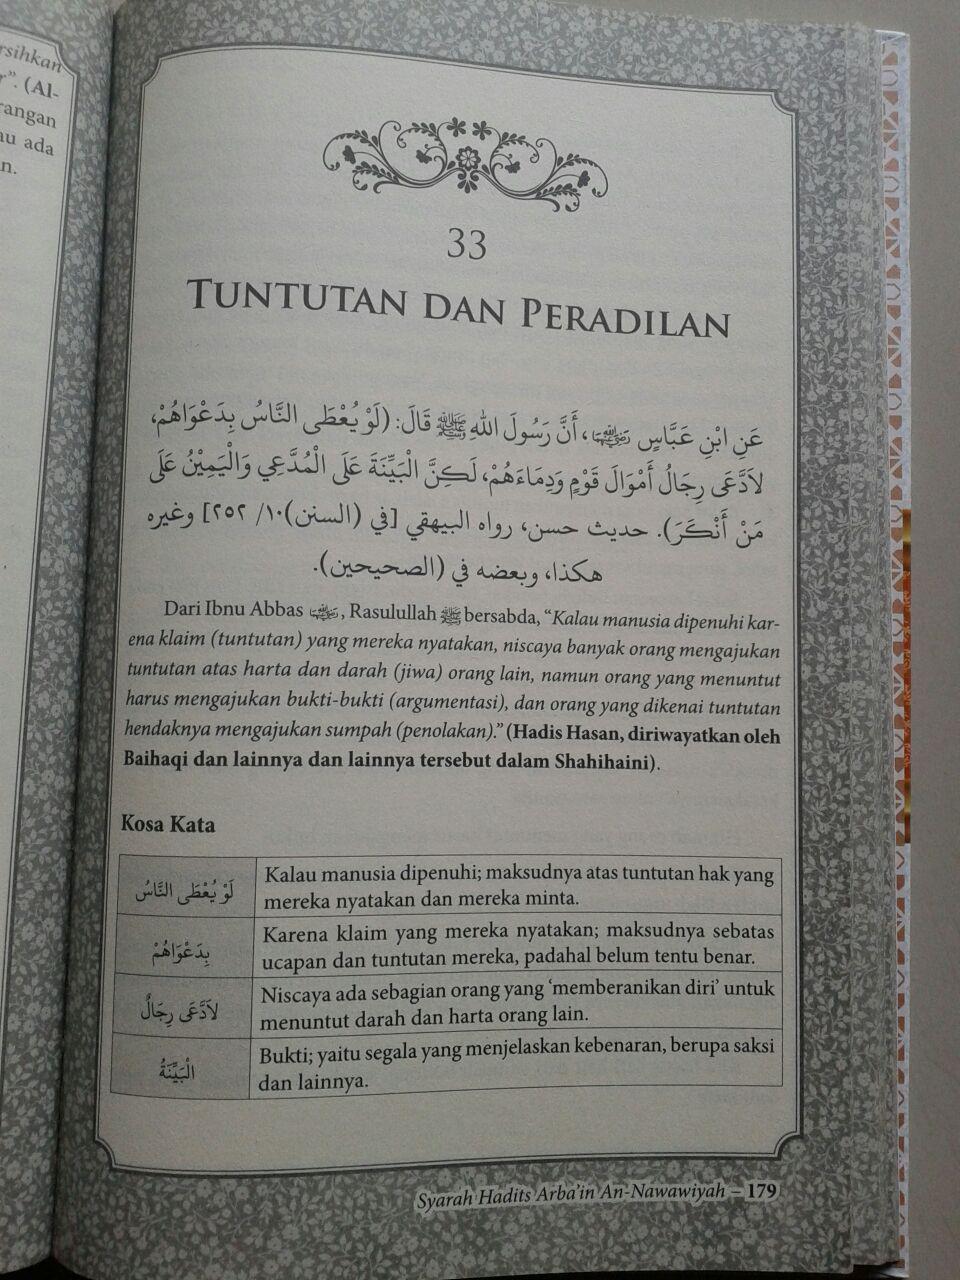 rsihkan
r”. (Al-
rangan
au ada
n.
33
TUNTUTAN DAN PERADILAN
عَنِ ابْنِ عَبَّاسٍ ﵁، أَنَّ رَسُولَ اللهِ ﷺ قَالَ: (لَوْ يُعْطَى النَّاسُ بِدَعْوَاهُمْ،
لاَدَّعَى رِجَالٌ أَمْوَالَ قَوْمٍ وَدِمَاءَهُمْ، لَكِنَّ الْبَيِّنَةَ عَلَى الْمُدَّعِي وَالْيَمِيْنُ عَلَى
مَنْ أَنْكَرَ). حديث حسن، رواه البيهقي [في (السنن)١٠/ ٢٥٢] وغيره
هكذا، وبعضه في (الصحيحين).
Dari Ibnu Abbas ﵁, Rasulullah ﷺ bersabda, “Kalau manusia dipenuhi kar-
ena klaim (tuntutan) yang mereka nyatakan, niscaya banyak orang mengajukan
tuntutan atas harta dan darah (jiwa) orang lain, namun orang yang menuntut
harus mengajukan bukti-bukti (argumentasi), dan orang yang dikenai tuntutan
hendaknya mengajukan sumpah (penolakan).” (Hadis Hasan, diriwayatkan oleh
Baihaqi dan lainnya dan lainnya tersebut dalam Shahihaini).
Kosa Kata
لَوْ يُعْطَى النَّاسُ
Kalau manusia dipenuhi; maksudnya atas tuntutan hak yang
mereka nyatakan dan mereka minta.
بِدَعْوَاهُمْ
Karena klaim yang mereka nyatakan; maksudnya sebatas
ucapan dan tuntutan mereka, padahal belum tentu benar.
لاَدَّعَى رِجَالٌ
Niscaya ada sebagian orang yang ‘memberanikan diri’ untuk
menuntut darah dan harta orang lain.
الْبَيِّنَةُ
Bukti; yaitu segala yang menjelaskan kebenaran, berupa saksi
dan lainnya.
Syarah Hadits Arba’in An-Nawawiyah – 179